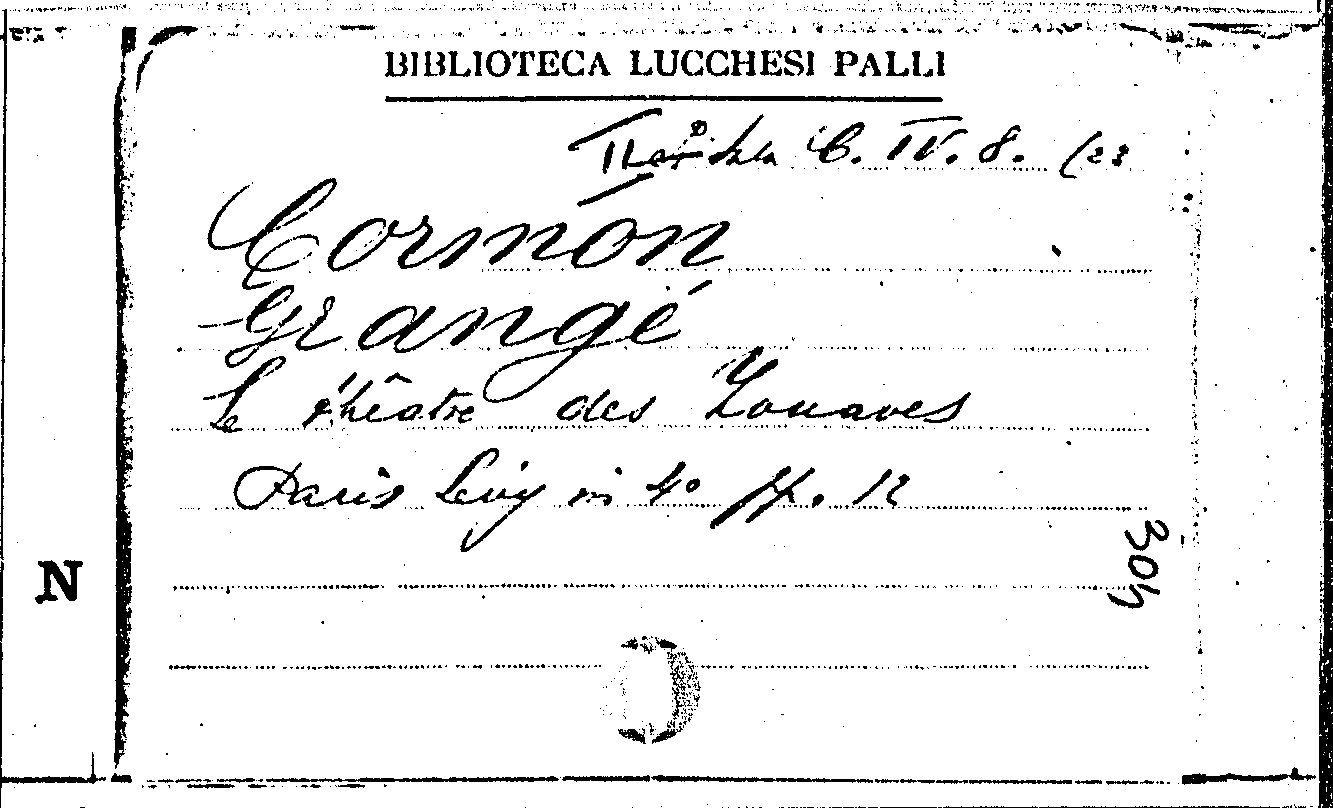 BIBLIOTECA LUCCHESI PALLI
IIª Sala C. IV. 8. (23
Cormon
Grangé
Le théatre des Zouaves
Paris Levy in 4º pp. 12
304
N